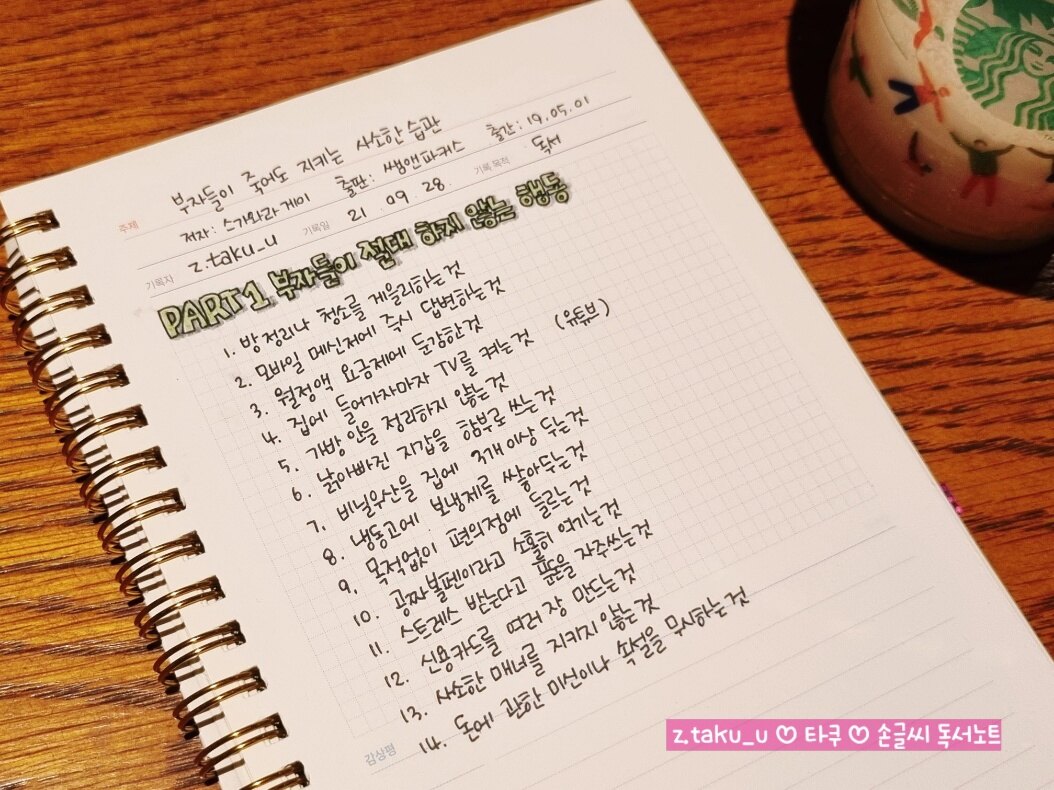 주제 부자들이 죽어도 지키는 사소한 습관
저자: 스가와라 게이 출판: 쌤앤파커스 출간: 19.05.01
기록자 z.taku_u 기록일 21.09.28. 기록 목적 독서
PART1 부자들이 절대 하지 않는 행동
1. 방정리나 청소를 게을리하는것
2. 모바일 메신저에 즉시 답변하는것
3. 월정액 요금제에 둔감한것
4. 집에 들어가자마자 TV를 켜는것 (유튜브)
5. 가방 안을 정리하지 않는것
6. 낡아빠진 지갑을 함부로 쓰는것
7. 비닐우산을 집에 3개이상 두는것
8. 냉동고에 보냉제를 쌓아두는것
9. 목적없이 편의점에 들르는것
10. 공짜볼펜이라고 소홀히 여기는것
11. 스트레스 받는다고 푼돈을 자주쓰는것
12. 신용카드를 여러 장 만드는것
13. 사소한 매너를 지키지 않는것
14. 돈에 관한 미신이나 속설을 무시하는것
감상평
z.taku_u ♡ 타쿠 ♡ 손글씨 독서노트